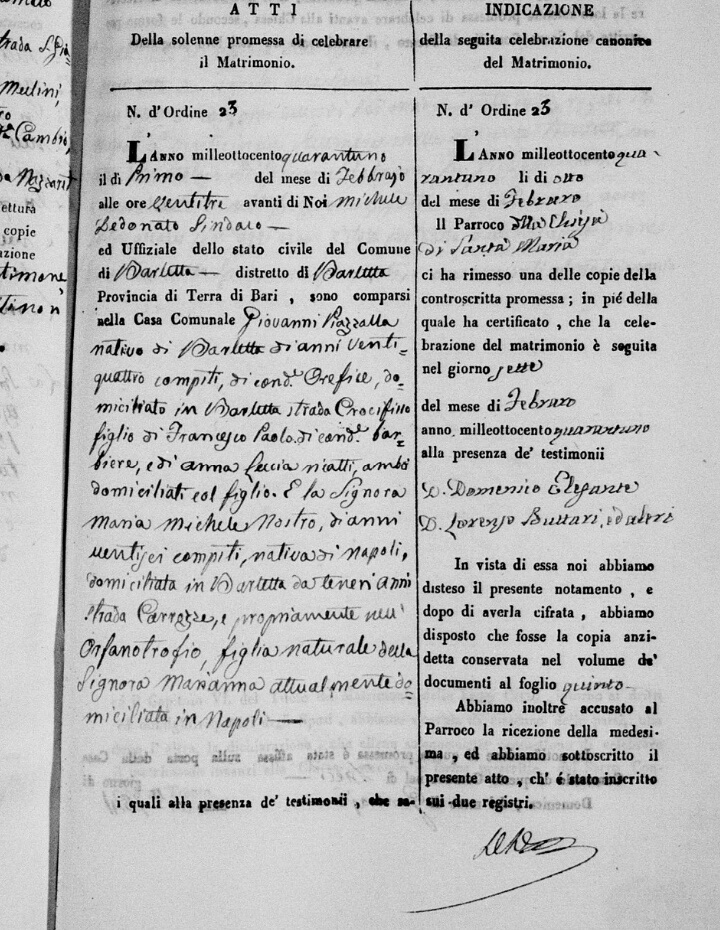 ATTI
Della solenne promessa di celebrare
il Matrimonio.
N. d' Ordine 23
L'ANNO milleottocento quarantuno
il di Primo — del mese di Febbrajo
alle ore Ventitre avanti di Noi Michele
Dedonato Sindaco —
ed Uffiziale dello stato civile del Comune
di Barletta — distretto di Barletta
Provincia di Terra di Bari , sono comparsi
nella Casa Comunale Giovanni Piazzalla
nativo di Barletta di anni Venti-
quattro compiti, di cond.e Orefice, do-
miciliato in Barletta strada Crocifisso
figlio di Francesco Paolo di cond.e bar-
biere, e di anna Leccia niatti, ambi
domiciliati col figlio. E la Signora
Maria Michele Nostro, di anni
ventisei compiti, nativa di Napoli,
domiciliata in Barletta da teneri anni
strada Carrozze, e propriamente nell'
Orfanotrofio, figlia naturale della
Signora Marianna attualmente do-
miciliata in Napoli —
i quali alla presenza de' testimonii , che sa-
INDICAZIONE
della seguita celebrazione canonica
del Matrimonio.
N. d' Ordine 23
L'ANNO milleottocento qua-
rantuno li di otto
del mese di Febraro
Il Parroco della Chiesa
di Santa Maria
ci ha rimesso una delle copie della
controscritta promessa ; in pié della
quale ha certificato , che la cele-
brazione del matrimonio è seguita
nel giorno sette
del mese di Febraro
anno milleottocento quarantuno
alla presenza de' testimonii
D. Domenico Elefante
D. Lorenzo Buttari, ed altri
In vista di essa noi abbiamo
disteso il presente notamento , e
dopo di averla cifrata , abbiamo
disposto che fosse la copia anzi-
detta conservata nel volume de'
documenti al foglio quinto
Abbiamo inoltre accusato al
Parroco la ricezione della medesi-
ma , ed abbiamo sottoscritto il
presente atto , ch' é stato inscritto
sui due registri.